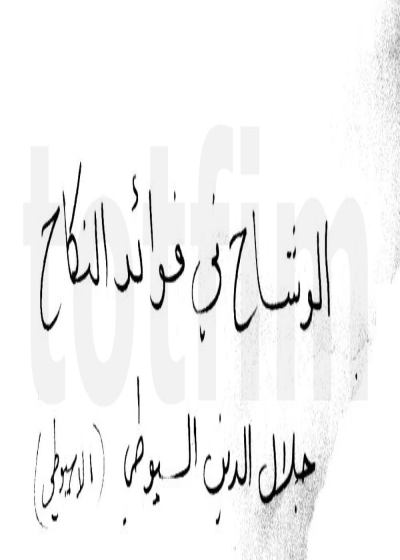 الوشاح في فوائد النكاح
جلال الدين السيوطي (الاسيوطي)
totfim